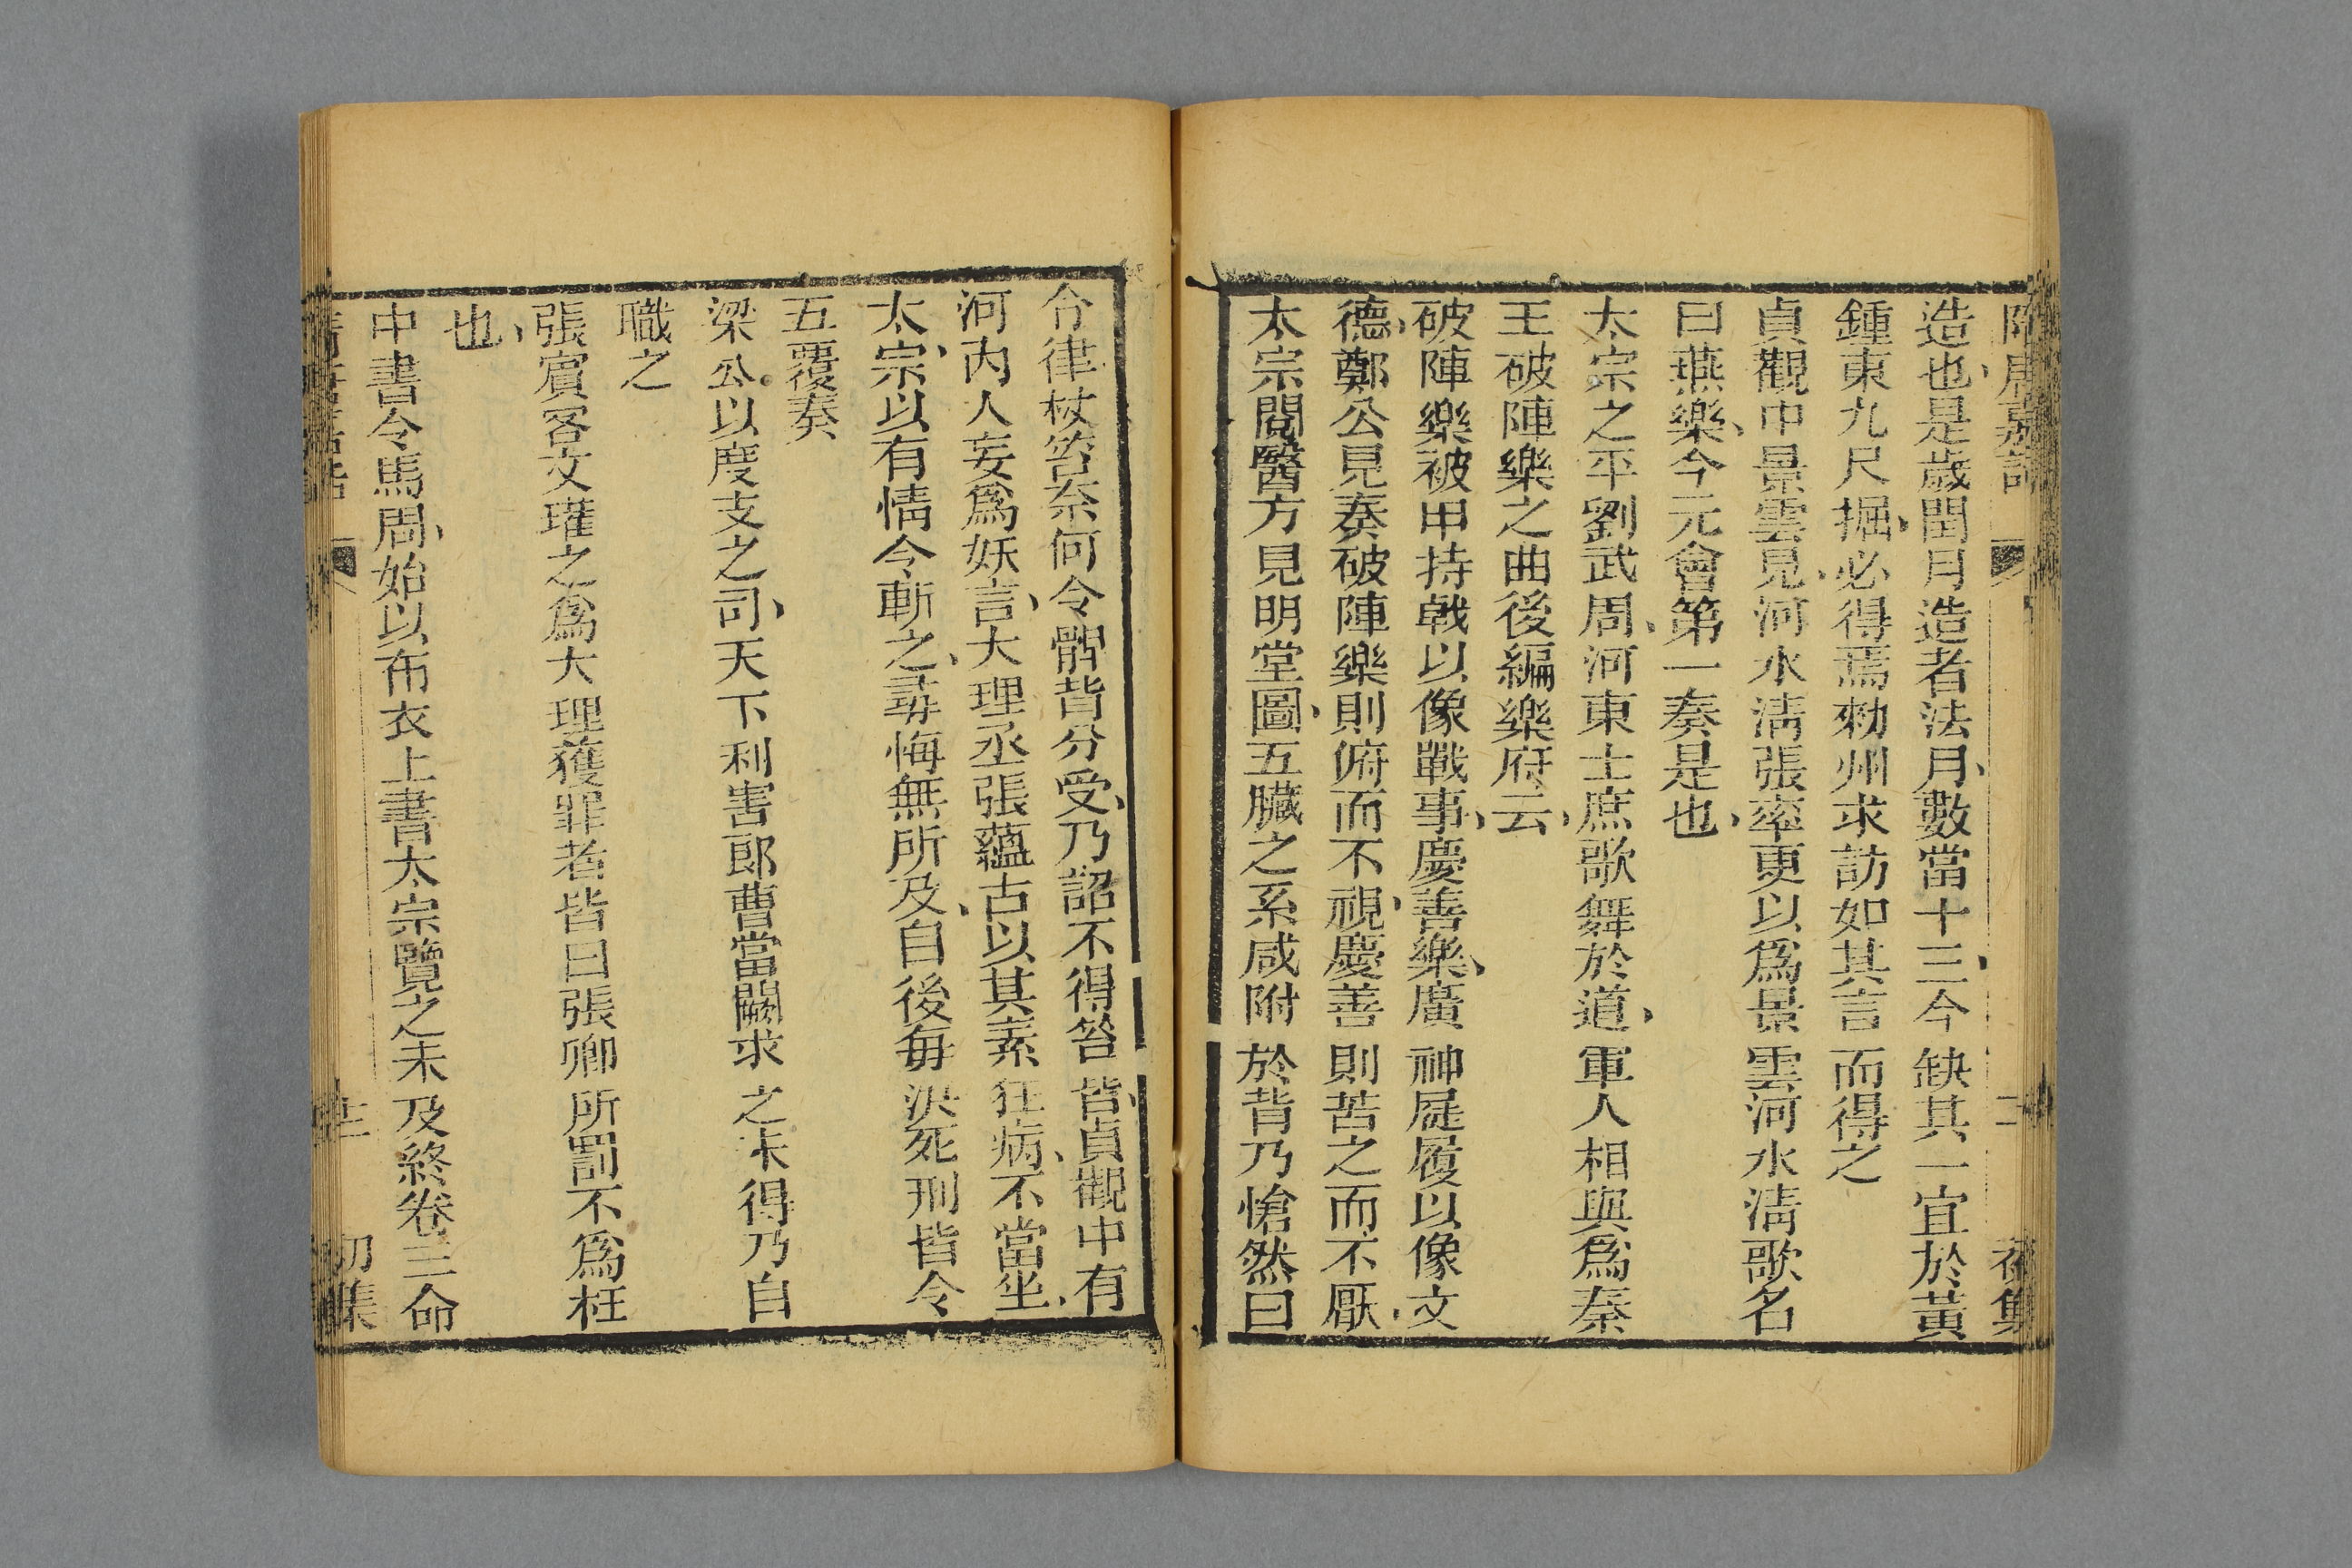 隋唐嘉話 二 初集
造也是歲閏月造者法月數當十三今缺其一宜於黃
鍾東九尺掘必得焉勑州求訪如其言而得之
貞觀中景雲見河水淸張率更以爲景雲河水淸歌名
曰燕樂今元會第一奏是也
太宗之平劉武周河東士庶歌舞於道軍人相與爲秦
王破陣樂之曲後編樂府云
破陣樂被甲持戟以像戰事慶善樂廣神屣履以像文
德鄭公見奏破陣樂則俯而不視慶善則苦之而不厭
太宗閱醫方見明堂圖五臟之系咸附於背乃愴然曰
今律杖笞奈何令髀背分受乃詔不得笞背貞觀中有
河內人妄爲妖言大理丞張蘊古以其素狂病不當坐
太宗以有情令斬之尋悔無所及自後每決死刑皆令
五覆奏
梁公以度支之司天下利害郎曹當闕求之未得乃自
職之
張賓客文瓘之爲大理獲罪者皆曰張卿所罰不爲枉
也
中書令馬周始以布衣上書太宗覽之未及終卷三命
初集